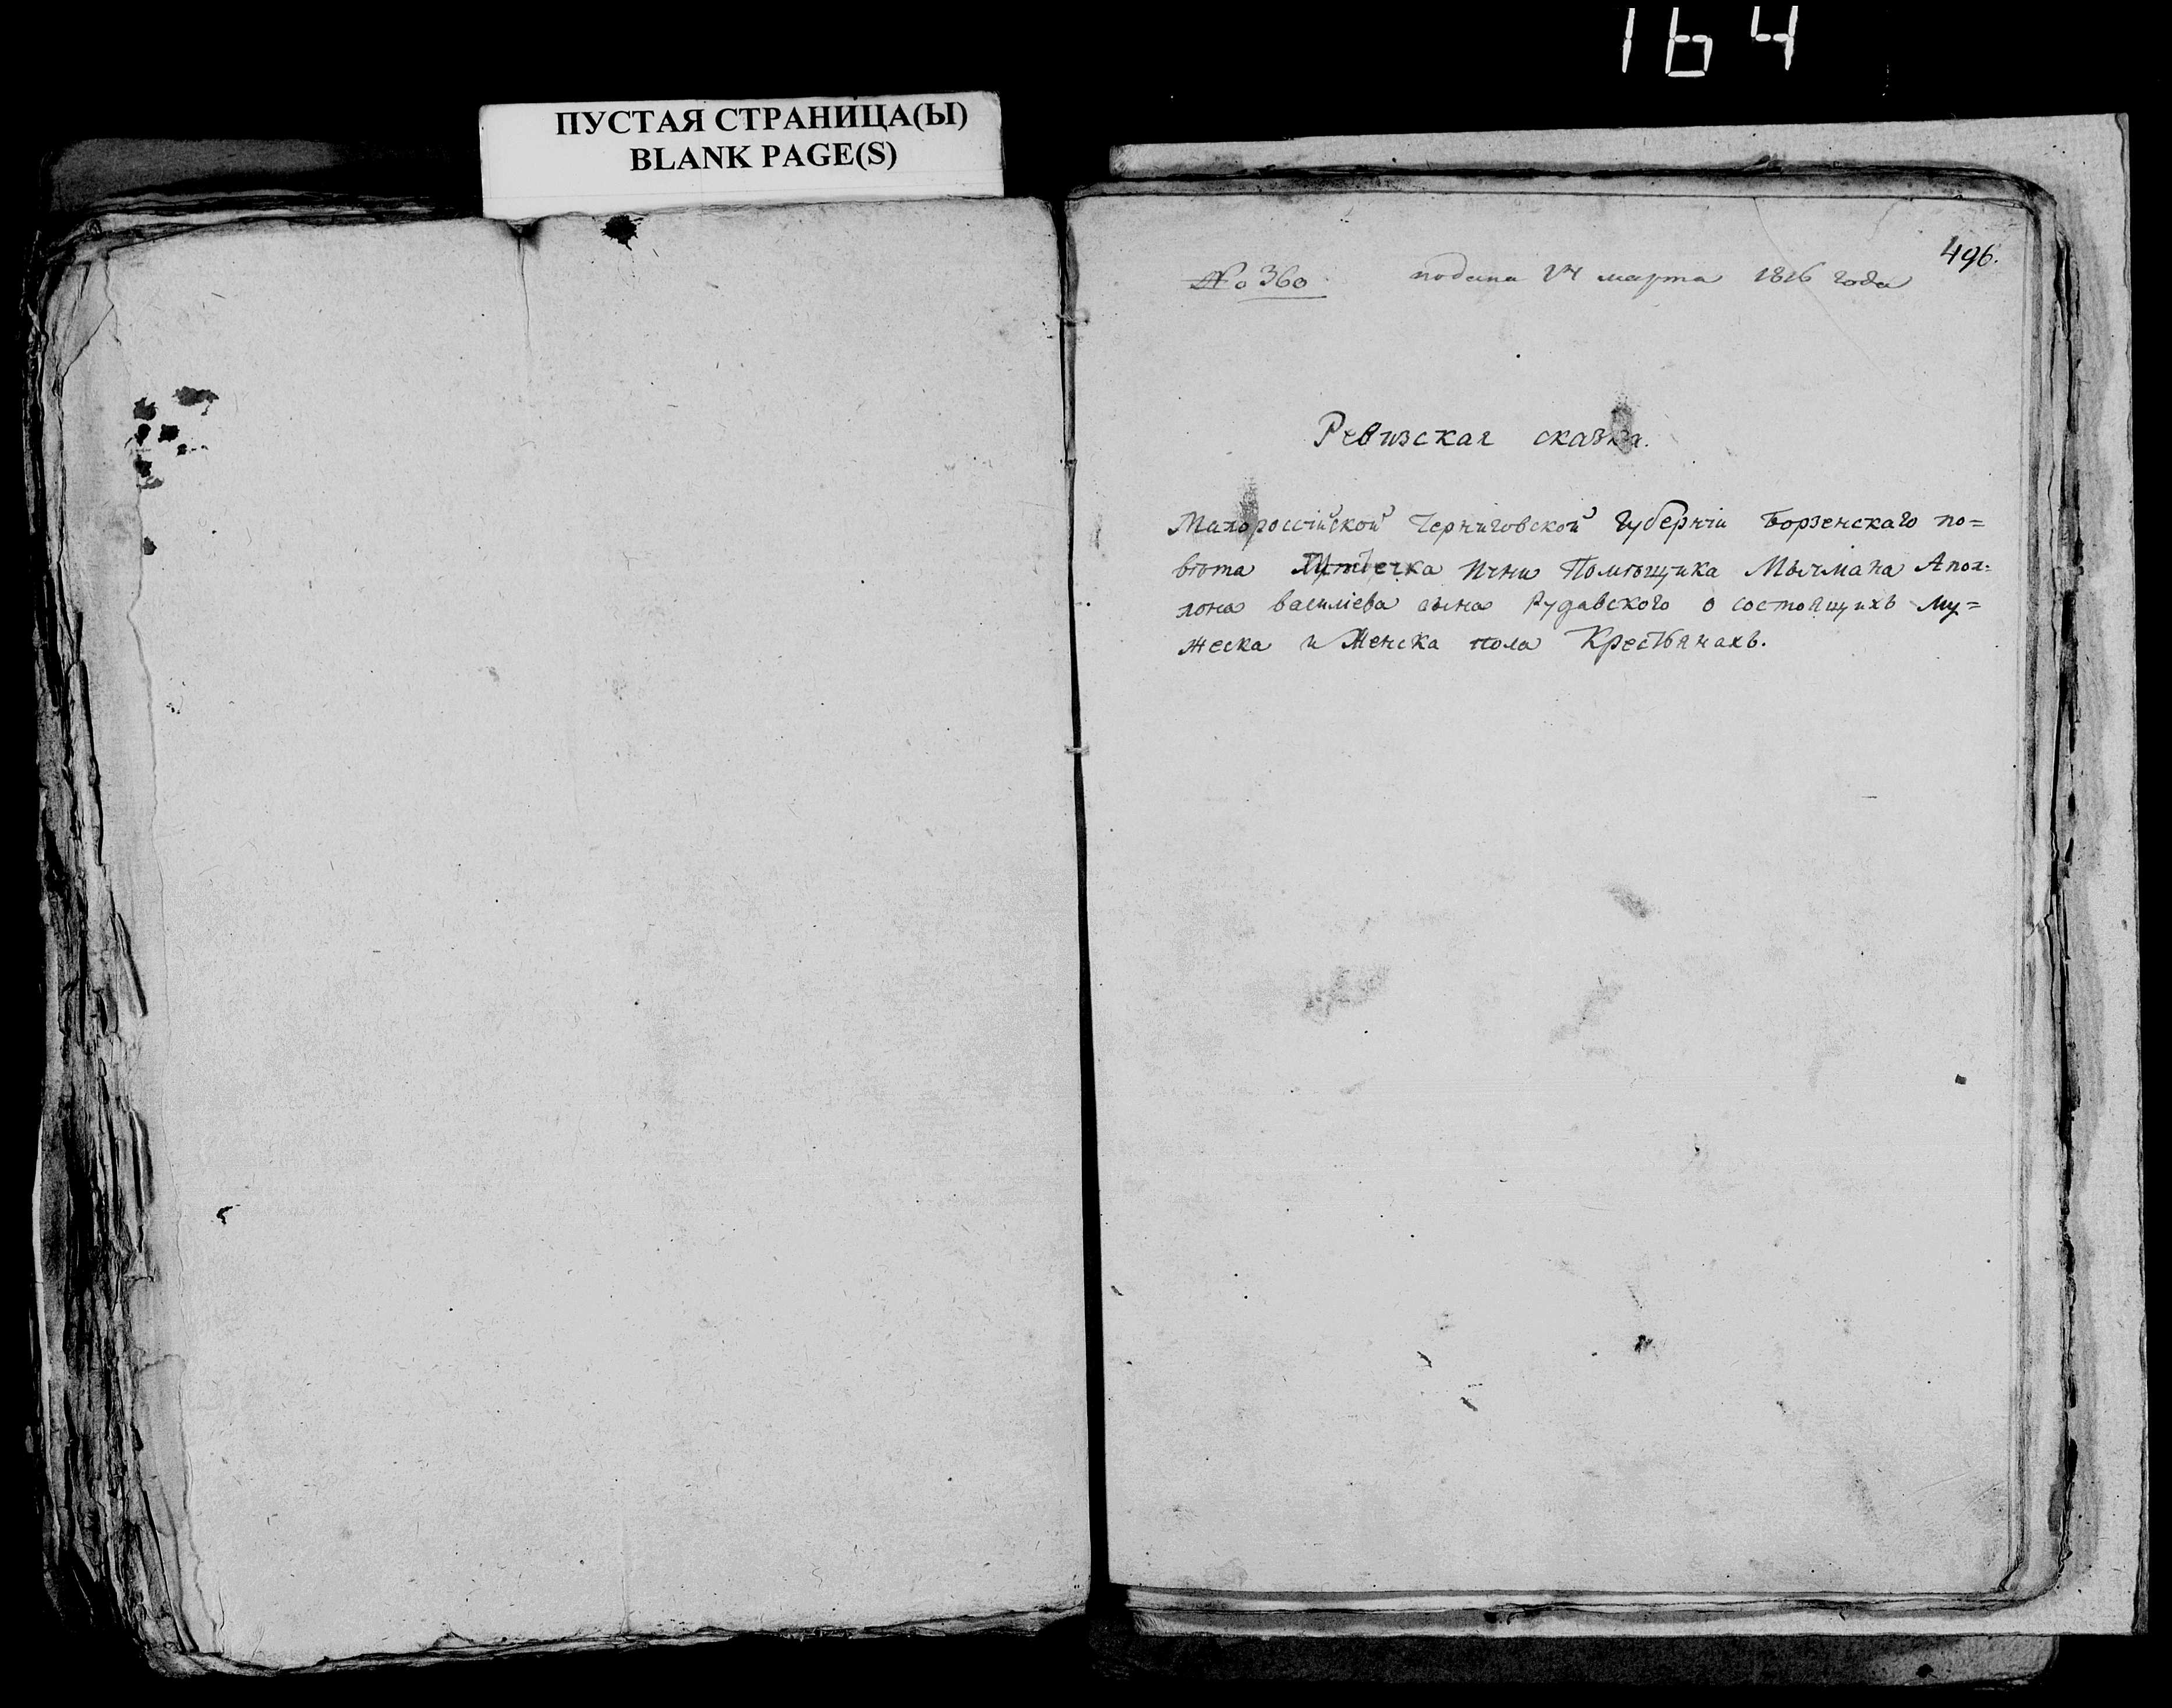 164
ПУСТАЯ СТРАНИЦА(Ы)
BLANK PAGE(S)
496.
№ 360 подана 14 марта 1816 года
Ревизская сказка.
Малороссійской Черниговской губерніи Борзенскаго по=
вѣта Ични Помѣщика Мычмана Апол=
лона василіева сына Рудавского о состоящихъ му=
жеска и Женска пола Крестьянахъ.